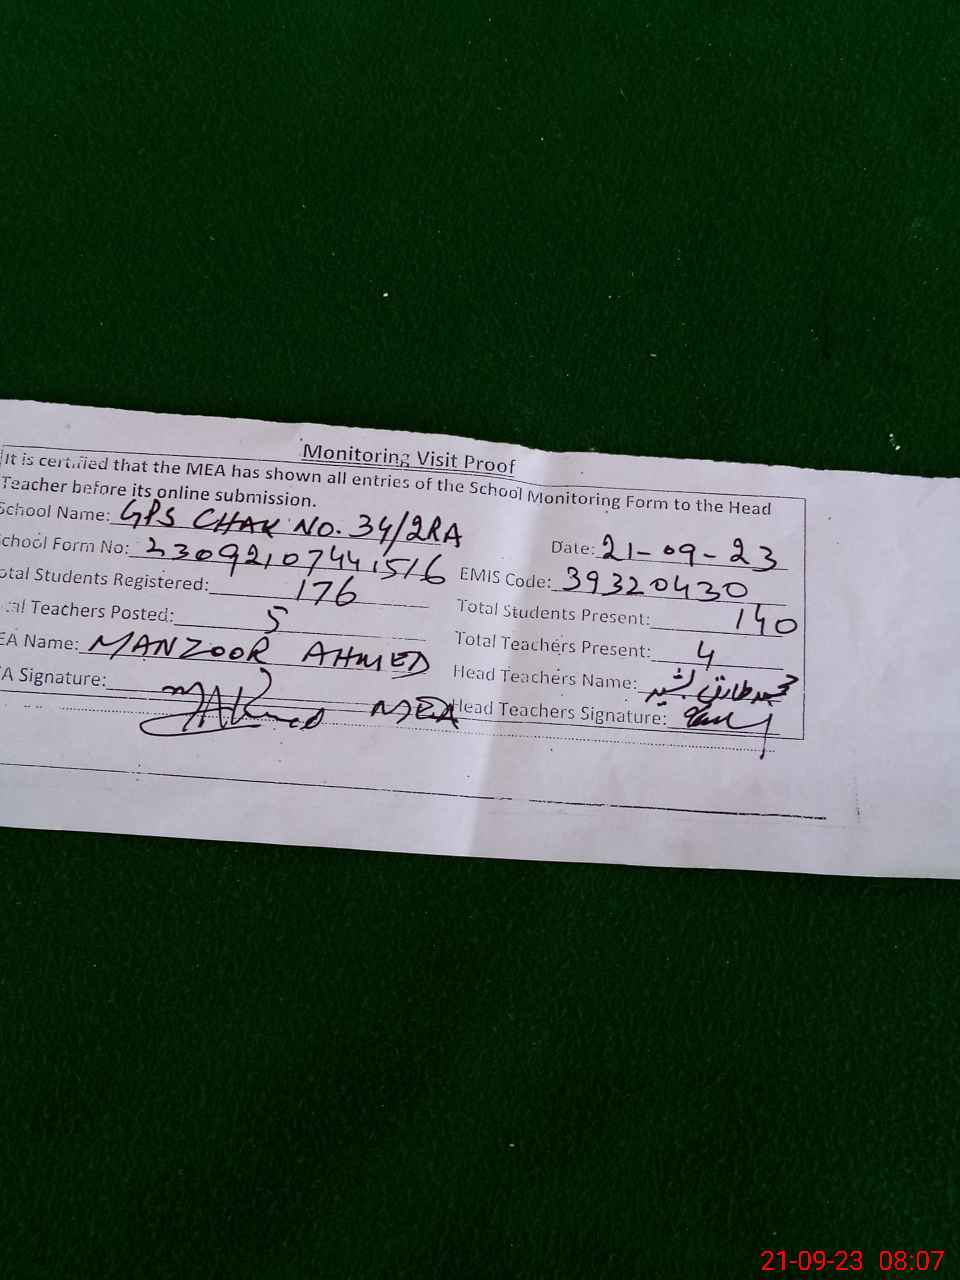 Monitoring Visit Proof
It is certified that the MEA has shown all entries of the School Monitoring Form to the Head
Teacher before its online submission.
School Name: GPS CHAK NO. 34/2RA
Date: 21-09-23
chool Form No: 23092107441516
EMIS Code: 39320430
otal Students Registered: 176
Total Students Present: 140
al Teachers Posted: 5
Total Teachers Present: 4
EA Name: MANZOOR AHMED
Head Teachers Name: محمد طارق بشیر
A Signature: MEA
Head Teachers Signature:
21-09-23 08:07